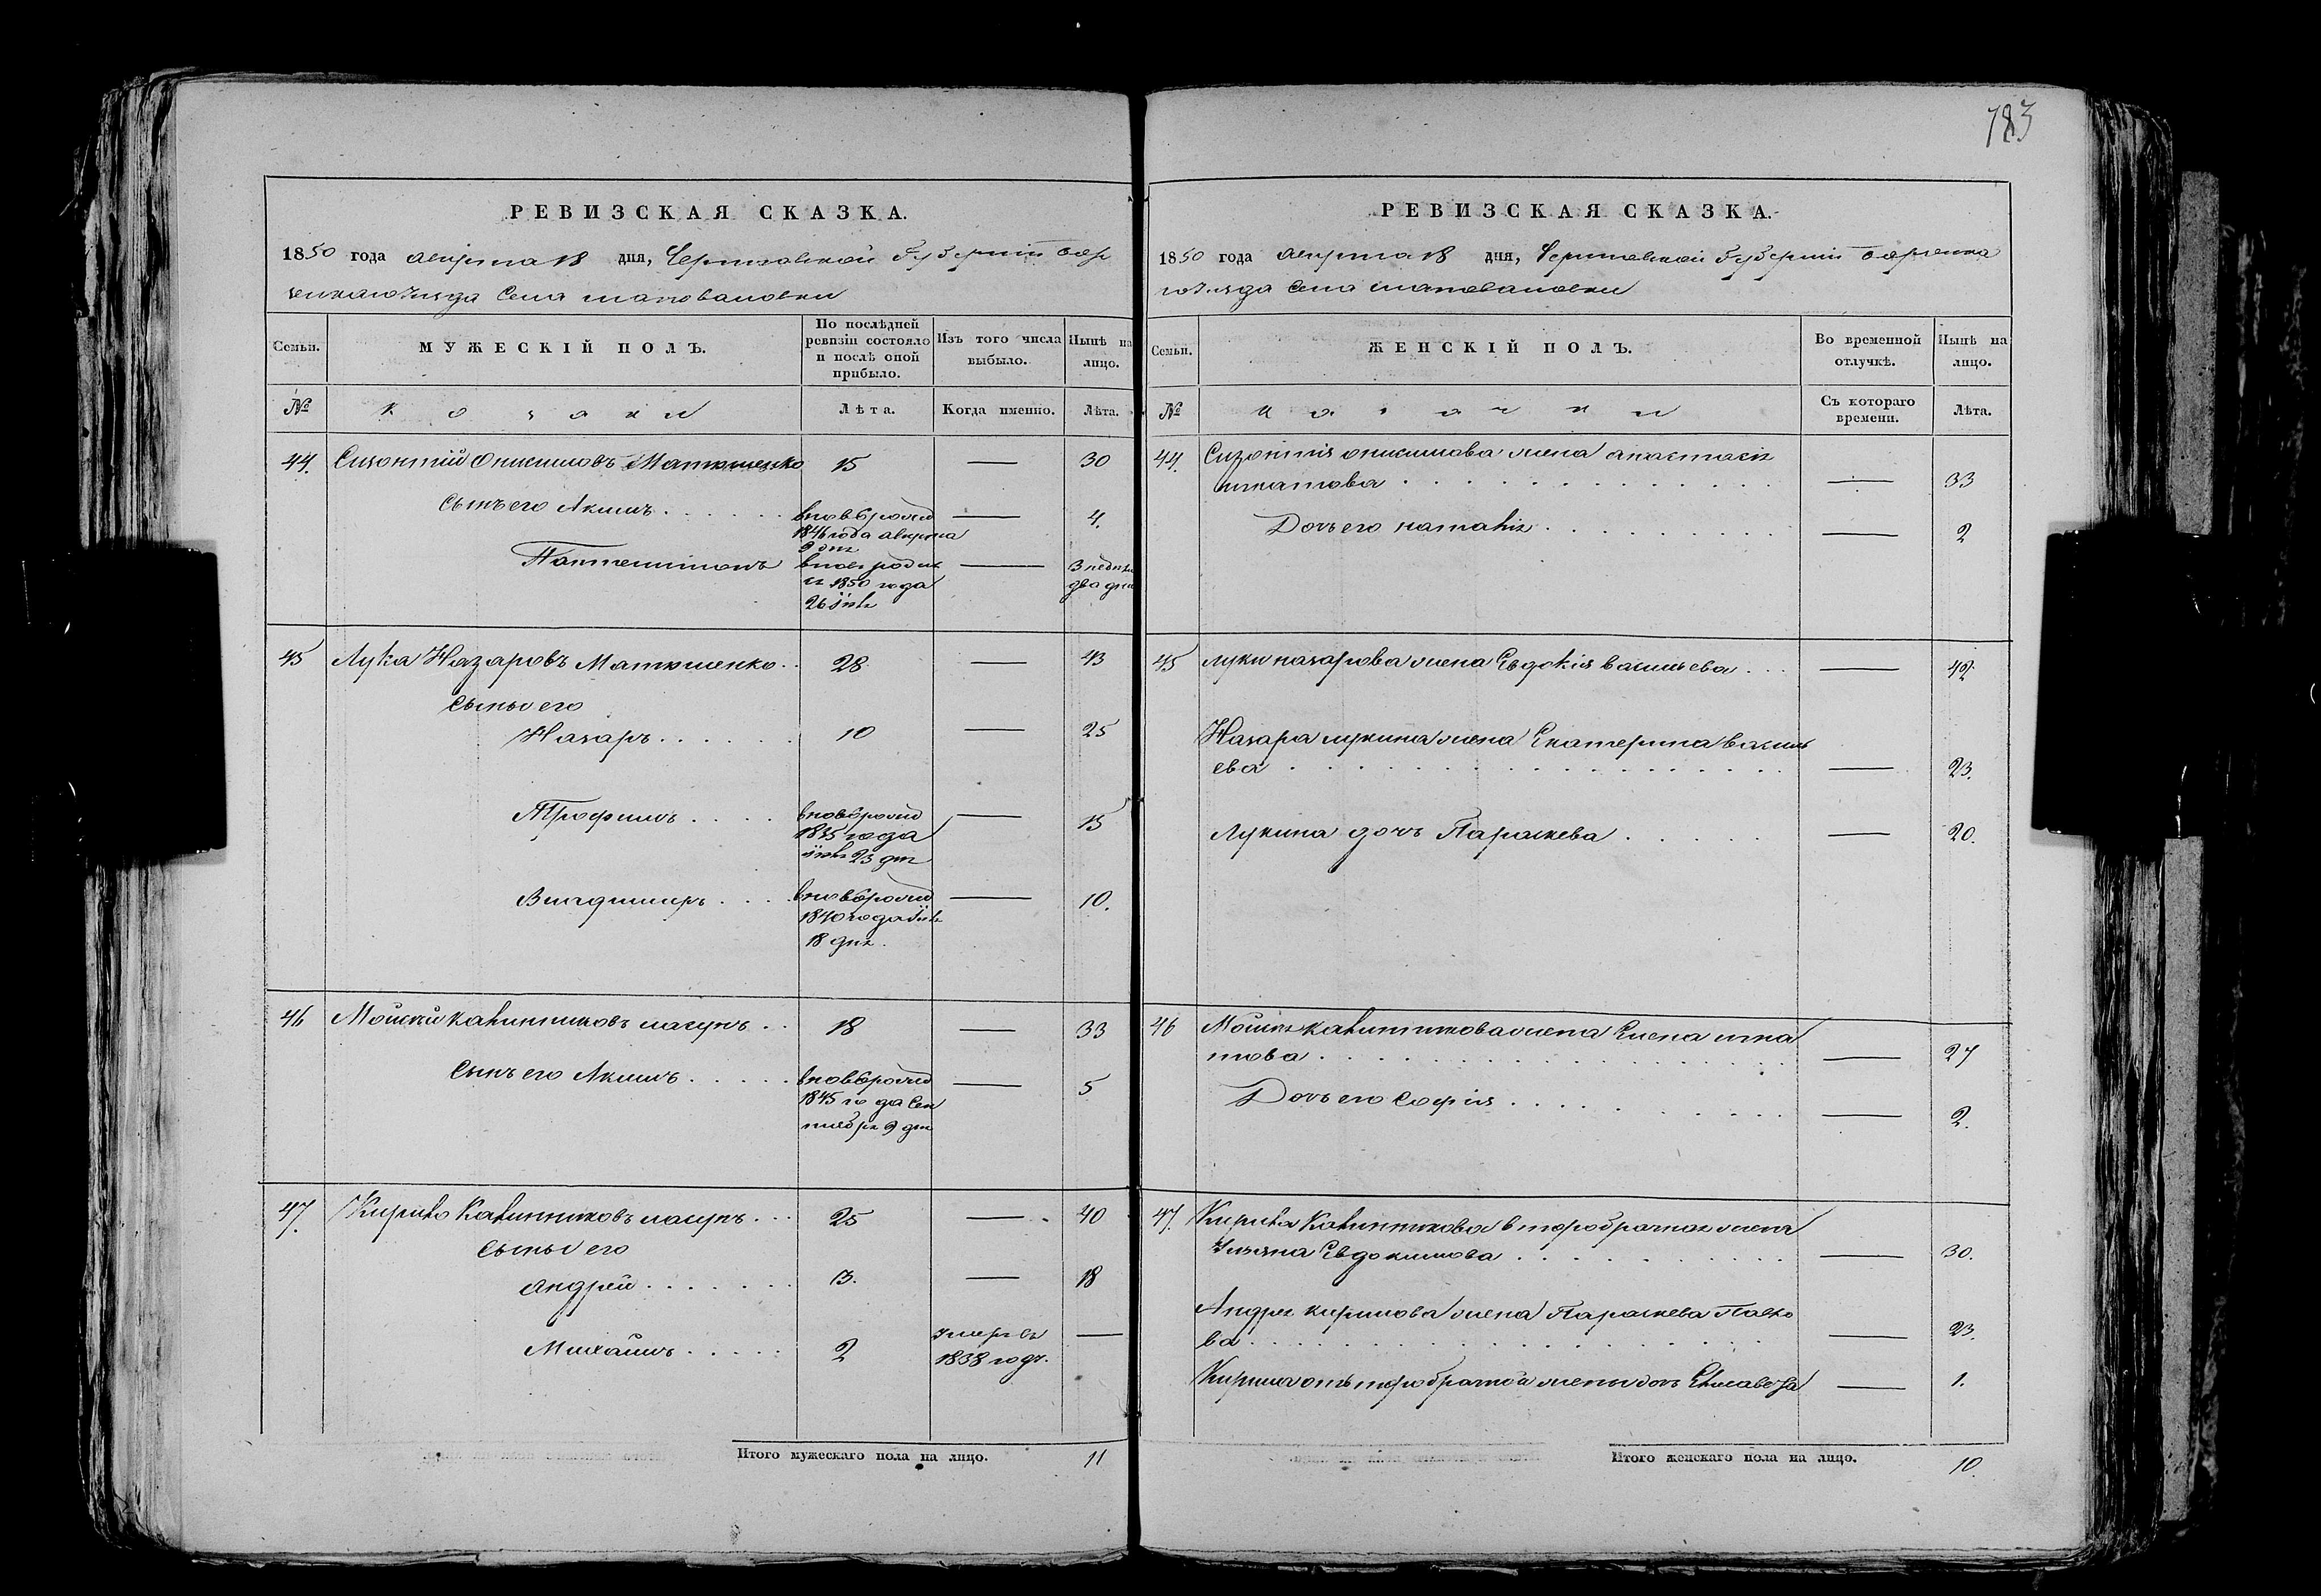 783
РЕВИЗСКАЯ СКАЗКА.
1850 года августа 18 дня, Черниговской Губернiи Бор
зенскаго уезда Села шаповаловки
Семьи.
МУЖЕСКІЙ ПОЛЪ.
По послѣдней ревизіи состояло и послѣ оной прибыло.
Изъ того числа выбыло.
Нынѣ на лицо.
№
козаки
Лѣта.
Когда именно.
Лѣта.
44. Сизонтій Онисимовъ Матюшенко 15 — 30
Сынъ его Акимъ вновьрожд — 4.
1846 года августа
9 дня
Пантелимонъ вновь родил — 3 недели
ся 1850 года два дни
26 Іюля
45 Лука Назаровъ Матюшенко 28 — 43
Сыны его
Назаръ 10 — 25
Трофимъ вновьрожд — 15
1835 года
іюля 23 дня
Владимиръ вновьрожд — 10.
1840 года Іюля
18 дня.
46 Мойсей калитинковъ 18 — 33
Сынъ его Акимъ вновьрожд — 5
1845 года Сен
тября 9 дня
47. Кирило Калитинковъ 25 — 40
Сыны его
андрей 13. — 18
Михайло 2 умеръ въ —
1838 годе.
Итого мужескаго пола на лицо. 11
РЕВИЗСКАЯ СКАЗКА.
1850 года августа 18 дня, Черниговской Губерніи борзенска
го Уезда Села шаповаловки
Семьи.
ЖЕНСКІЙ ПОЛЪ.
Во временной отлучкѣ.
Нынѣ на лицо.
№
козачки
Съ котораго времени.
Лѣта.
44. Сизонтія онисимова жена анастасія
игнатова — 33
Дочь его наталія — 2
45 луки назарова жена Евдокія васильева — 42
Назара лукина жена Екатерина василь
ева — 23.
Лукина дочь Параскева — 20.
46 Мойсея калитинкова жена Елена игна
това — 27
Дочь его Софія — 2.
47. Кирила Калитинкова второбрачная жена
Ульяна Евдокимова — 30.
Андрея кирилова жена Параскева Павло
ва — 23.
Кирила отъ второбрачной жены дочь Елисавета — 1.
Итого женскаго пола на лицо. 10.